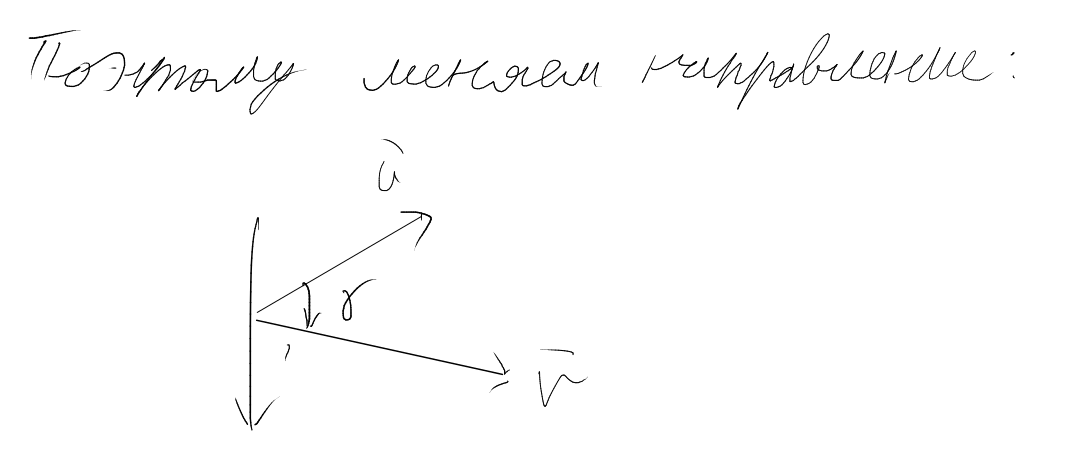 Поэтому меняем направление:
ū
γ
v̄